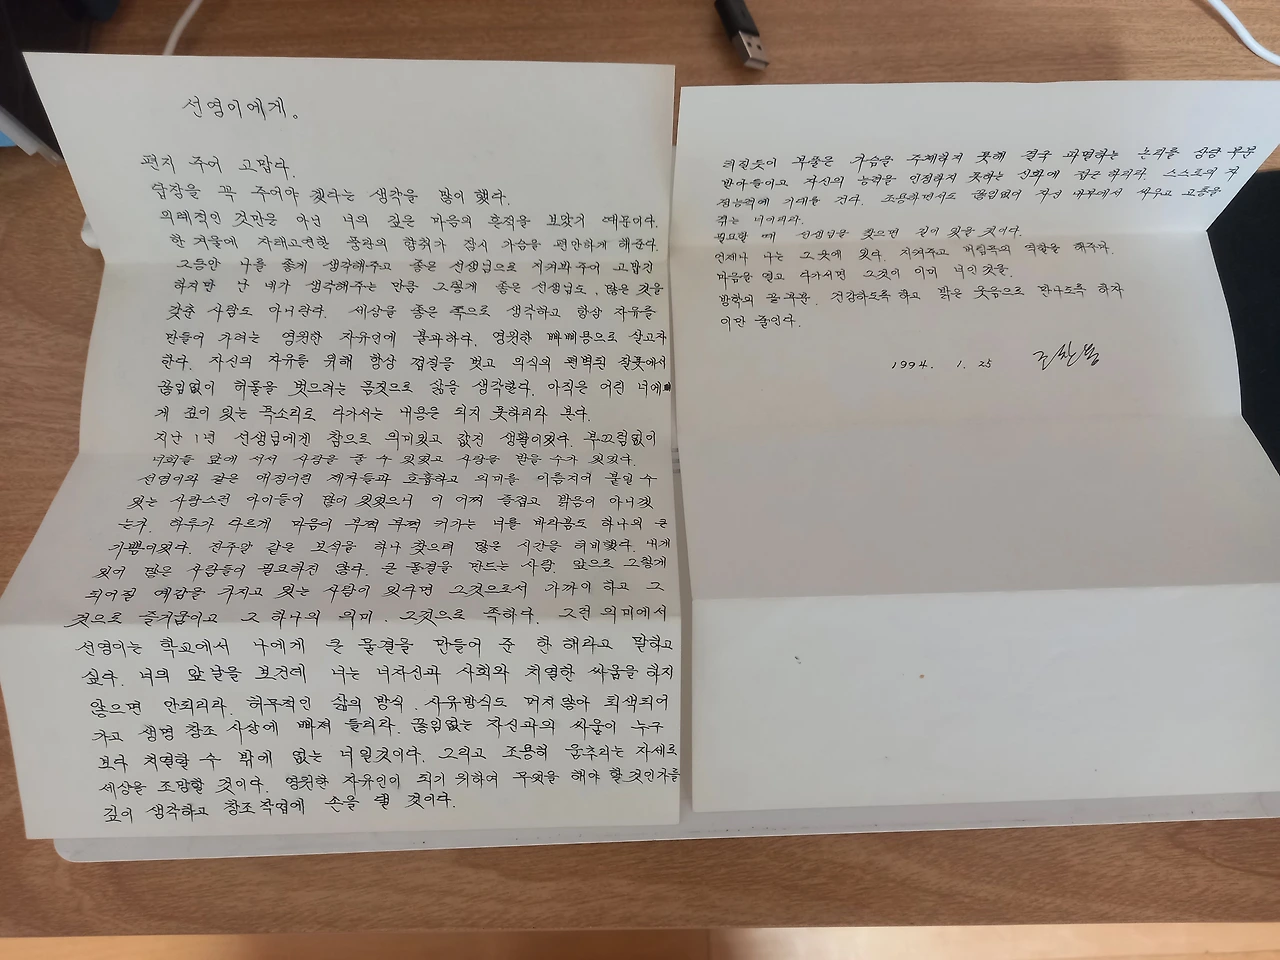 선영이에게.
편지 주어 고맙다.
답장을 꼭 주어야 겠다는 생각을 많이 했다.
의례적인 것만은 아닌 너의 깊은 마음의 흔적을 보았기 때문이다.
한 겨울에 자태고연한 풍란의 향취가 잠시 가슴을 편안하게 해준다.
그동안 나를 좋게 생각해주고 좋은 선생님으로 지켜봐 주어 고맙긴
하지만 난 네가 생각해주는 만큼 그렇게 좋은 선생님도, 많은 것을
갖춘 사람도 아니란다. 세상을 좋은 쪽으로 생각하고 항상 자유를
만들어 가려는 영원한 자유인에 불과하다. 영원한 빠삐용으로 살고자
한다. 자신의 자유를 위해 항상 껍질을 벗고 의식의 편벽된 잘못에서
끊임없이 허물을 벗으려는 몸짓으로 삶을 생각한다. 아직은 어린 너에
게 깊이 있는 목소리로 다가서는 내용은 되지 못하리라 본다.
지난 1년 선생님에게 참으로 의미있고 값진 생활이었다. 부끄럼없이
너희들 앞에 서서 사랑을 줄 수 있었고 사랑을 받을 수가 있었다.
선영이와 같은 애정어린 제자들과 호흡하고 의미를 이름지어 붙일 수
있는 사랑스런 아이들이 많이 있었으니 이 어찌 즐겁고 밝음이 아니겠
는가. 하루가 다르게 마음이 부쩍 부쩍 커가는 너를 바라봄도 하나의 큰
기쁨이었다. 진주알 같은 보석을 하나 찾으려 많은 시간을 허비했다. 내게
있어 많은 사람들이 필요하진 않다. 큰 물결을 만드는 사람. 앞으로 그렇게
되어질 예감을 가지고 있는 사람이 있다면 그것으로서 가까이 하고 그
것으로 즐거움이고 그 하나의 의미. 그것으로 족하다. 그런 의미에서
선영이는 학교에서 나에게 큰 물결을 만들어 준 한 해라고 말하고
싶다. 너의 앞 날을 보건데 너는 너자신과 사회와 치열한 싸움을 하지
않으면 안되리라. 허무적인 삶의 방식. 사유방식도 머지않아 퇴색되어
가고 생명 창조 사상에 빠져 들리라. 끊임없는 자신과의 싸움이 누구
보다 치열할 수 밖에 없는 너일것이다. 그리고 조용히 움추리는 자세로
세상을 조망할 것이다. 영원한 자유인이 되기 위하여 무엇을 해야 할 것인가를
깊이 생각하고 창조작업에 손을 델 것이다.
터질듯이 부풀은 가슴을 주체하지 못해 결국 파멸하는 논리를 상당 부분
받아들이고 자신의 능력을 인정하지 못하는 신화에 접근하리라. 스스로의 자
정능력에 기대를 건다. 조용하면서도 끊임없이 자신 내부에서 싸우고 고통을
겪는 너이리라.
필요할 때 선생님을 찾으면 길이 있을 것이다.
언제나 나는 그 곳에 있다. 지켜주고 버팀목의 역할을 해주마.
마음을 열고 다가서면 그것이 이미 너인것을.
방학의 끝 무렵. 건강하도록 하고 밝은 웃음으로 만나도록 하자
이만 줄인다.
1994. 1. 25